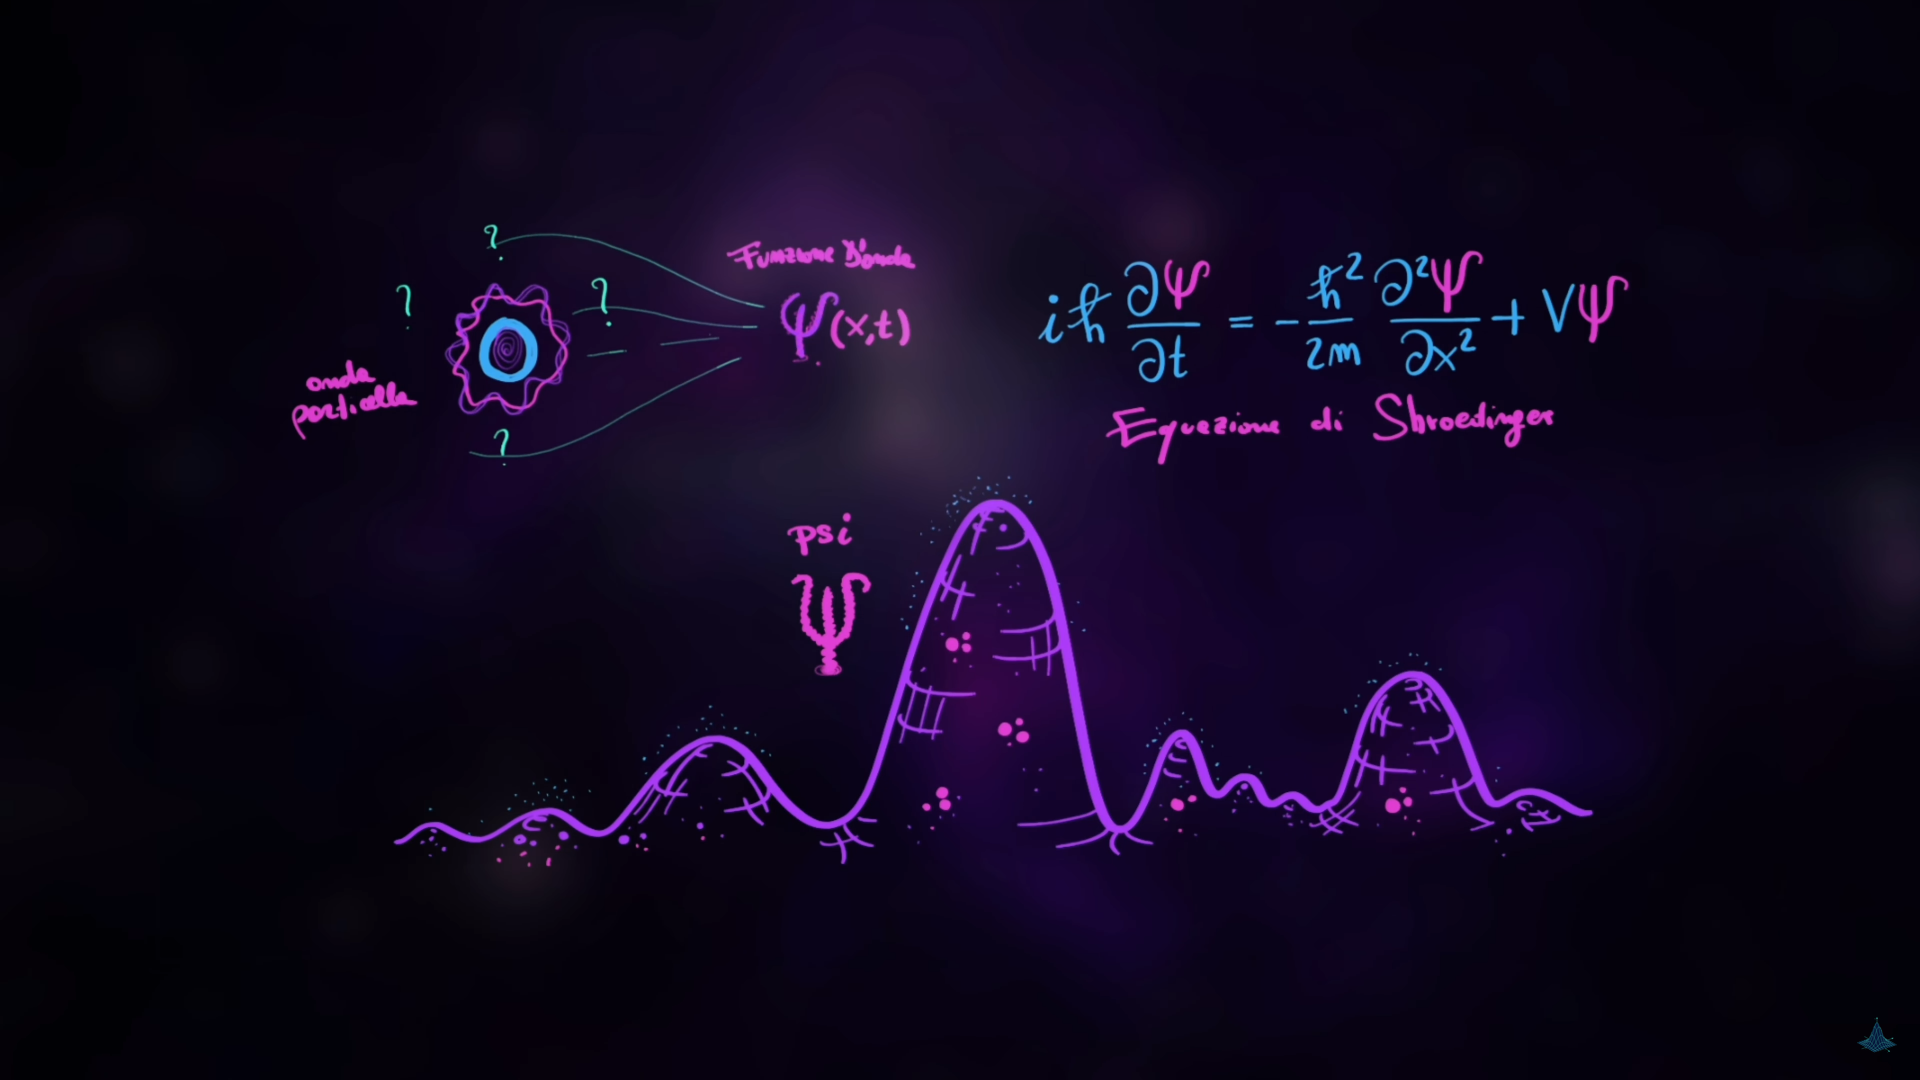 ?
?
?
?
onda
particella
Funzione D'onda
Ψ(x,t)
iħ ∂Ψ/∂t = - ħ²/2m ∂²Ψ/∂x² + VΨ
Equazione di Shroedinger
psi
Ψ